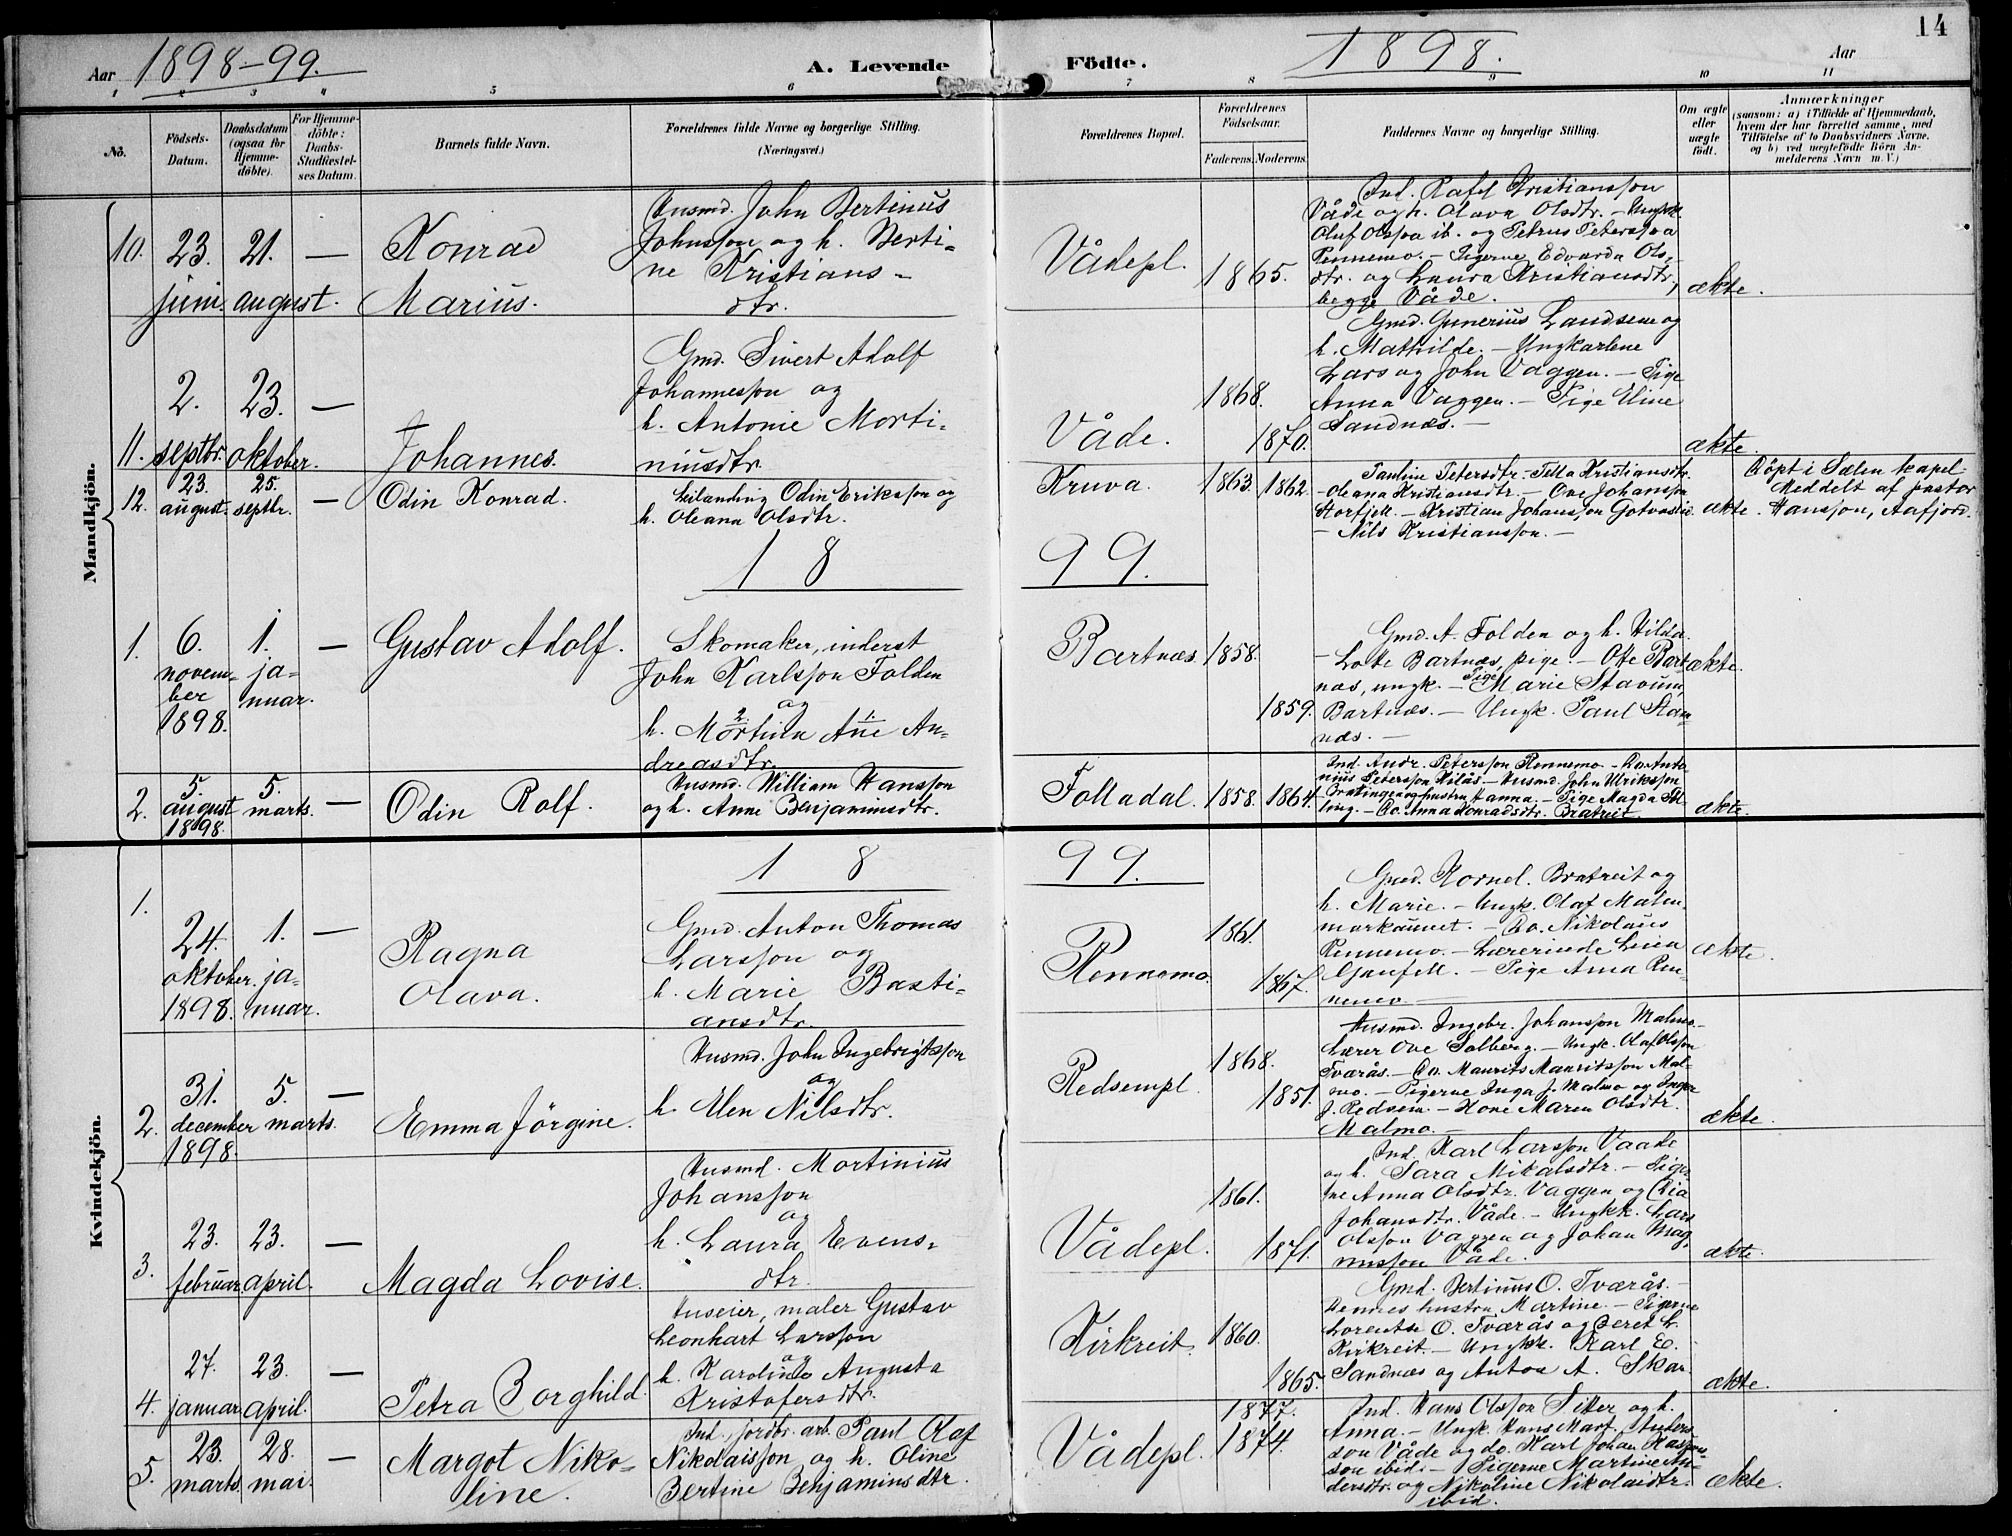 14
Aar 1898-99.
A. Levende
Födte.
1898.
Aar
1 2 3 4 5 6 7 8 9 10 11
No.
Födsels-
Datum.
Daabsdatum
(ogsaa for
Hjemme-
döbte).
For Hjemme-
döbte:
Daabs-
Stadfæstel-
ses Datum.
Barnets fulde Navn.
Forældrenes fulde Navne og borgerlige Stilling.
(Næringsvei.)
Forældrenes Bopæl.
Forældrenes
Födselsaar.
Faderens. Moderens.
Faddernes Navne og borgerlige Stilling.
Om ægte
eller
uægte
födt.
Anmærkninger
(saasom: a) i Tilfælde af Hjemmedaab,
hvem der har forrettet samme, med
Tilföielse af to Daabsvidners Navne,
og b) ved uægtefödte Börn An-
melderens Navn m. V.)
Mandkjön.
10.
23.
juni
21.
august.
—
Konrad
Marius.
Husmd. John Bertinus
Johnsson og h. Berti-
ne Kristians-
dtr.
Vådepl.
1865.
Ind. Rafel Kristiansson
Våde og h. Olava Olsdtr. - Ungk.
Oluf Olsson ib. og Petrus Petersson
Rennemo. - Pigerne Edvarda Ols-
dtr. og Laura Kristiansdtr.,
begge Våde.
ækte.
11.
2.
septbr.
23.
oktober.
—
Johannes.
Gmd. Sivert Adolf
Johannesson og
h. Antonie Morti-
niusdtr.
Våde.
1868.
1870.
Gmd. Gunerius Landsem og
h. Mathilde. - Ungkarlene
Lars og John Vaggen. - Pige
Anna Vaggen. - Pige Eline
Sandnæs. -
ækte
12.
23.
august.
25.
septbr.
—
Odin Konrad.
Leilending Odin Eriksson og
h. Oleana Olsdtr.
Kruva.
1863.
1862.
Pauline Petersdtr. - Petta Kristiansdtr.
- Oleana Kristiansdtr. - Ove Johansson
Storfjell. - Kristian Johansson Gotvaslie.
- Nils Kristiansson. -
ækte.
Döpt i Sælen kapel.
Meddelt af pastor
Hansson, Aafjord.
18
99.
1.
6.
novem-
ber
1898.
1.
ja-
nuar.
—
Gustav Adolf.
Skomaker, inderst
John Karlsson Folden
og
2. 1.
h. Mortina Ane An-
dreasdtr.
Bartnæs
1858.
1859.
Gmd. A. Folden og h. Hilda.
- Lotte Bartnæs, pige. - Otte Bart-
Pige
næs, ungk. - Marie Stavrum,
Bartnæs. - Ungk. Paul Stam-
næs. -
ækte.
2.
5.
august
1898.
5.
marts.
—
Odin Rolf.
Husmd. William Hansson
og h. Anne Benjaminsdtr.
Folladal.
1858.
1864.
Ind. Andr. Petersson Rennemo. - Do. Anto-
nius Petersson Hilås. - Husmd. John Ulriksson
Bratingen og hustru Hanna. - Pige Magda
ling. - Do. Anna Konradsdtr. Bratreit.
ækte.
Kvindekjön.
18
99.
1.
24.
oktober.
1898.
1.
ja-
nuar.
—
Ragna
Olava.
Gmd. Anton Thomas
Larsson og
h. Marie Basti-
ansdtr.
Rennemo.
1861.
1867.
Gmd. Kornel. Bratreit og
h. Marie. - Ungk. Olaf Malm,
markaunet. - Do. Nikolaus
Rennemo. - Lærerinde Lina
Gaufell. - Pige Anna Ren-
nemo. -
ækte.
2.
31.
december
1898.
5.
marts.
—
Emma Jörgine.
Husmd. John Ingebrigtsson
og
h. Elen Nilsdtr.
Redsempl.
1868.
1851.
Husmd. Ingebr. Johansson Malmo. -
Lærer Ove Solberg. - Ungk. Olaf Olsson
Tværås. - Do. Maurits Mauritsson Mal-
mo. - Pigerne Inga J. Malmo og Inga
J. Redsem. - Kone Maren Olsdtr.
Malmo. -
ækte.
3.
23.
februar
23.
april.
—
Magda Lovise.
Husmd. Mortinius
Johansson
og
h. Laura Evens-
dtr.
Vådepl.
1861.
1871.
Ind. Karl Larsson Vaade
og h. Sara Mikalsdtr. - Piger-
ne Anna Olsdtr. Vaggen og Dia
Johansdtr. Våde. - Ungkk. Lars
Olsson Vaggen og Johan Mag-
nusson Våde.
ækte.
4.
27.
januar
23.
april.
—
Petra Borghild.
Huseier, maler Gustav
Leonhart Larsson
og
h. Karoline Augusta
Kristofersdtr.
Kirkreit.
1860.
1865.
Gmd. Bertinus O. Tværås. -
Dennes hustru Martine. - Pigerne
Lorentse O. Tværås og Beret L.
Kirkreit. - Ungkk. Karl E.
Sandnæs og Anton A. Skar.
ækte.
5.
23.
marts
28.
mai.
—
Margot Niko-
line.
Ind., jordbr. arb. Paul Olaf
Nikolaisson og h. Oline
Bertine Benjaminsdtr.
Vådepl.
1877.
1874.
Ind. Hans Olsson Sitter og h.
Anna. - Ungk. Hans Mart. Anders-
son Våde og do. Karl Johan Kaspers-
son ibid. - Pigerne Martine An-
dersdtr. og Nikoline Nikolaidtr.
ibid.
ækte.